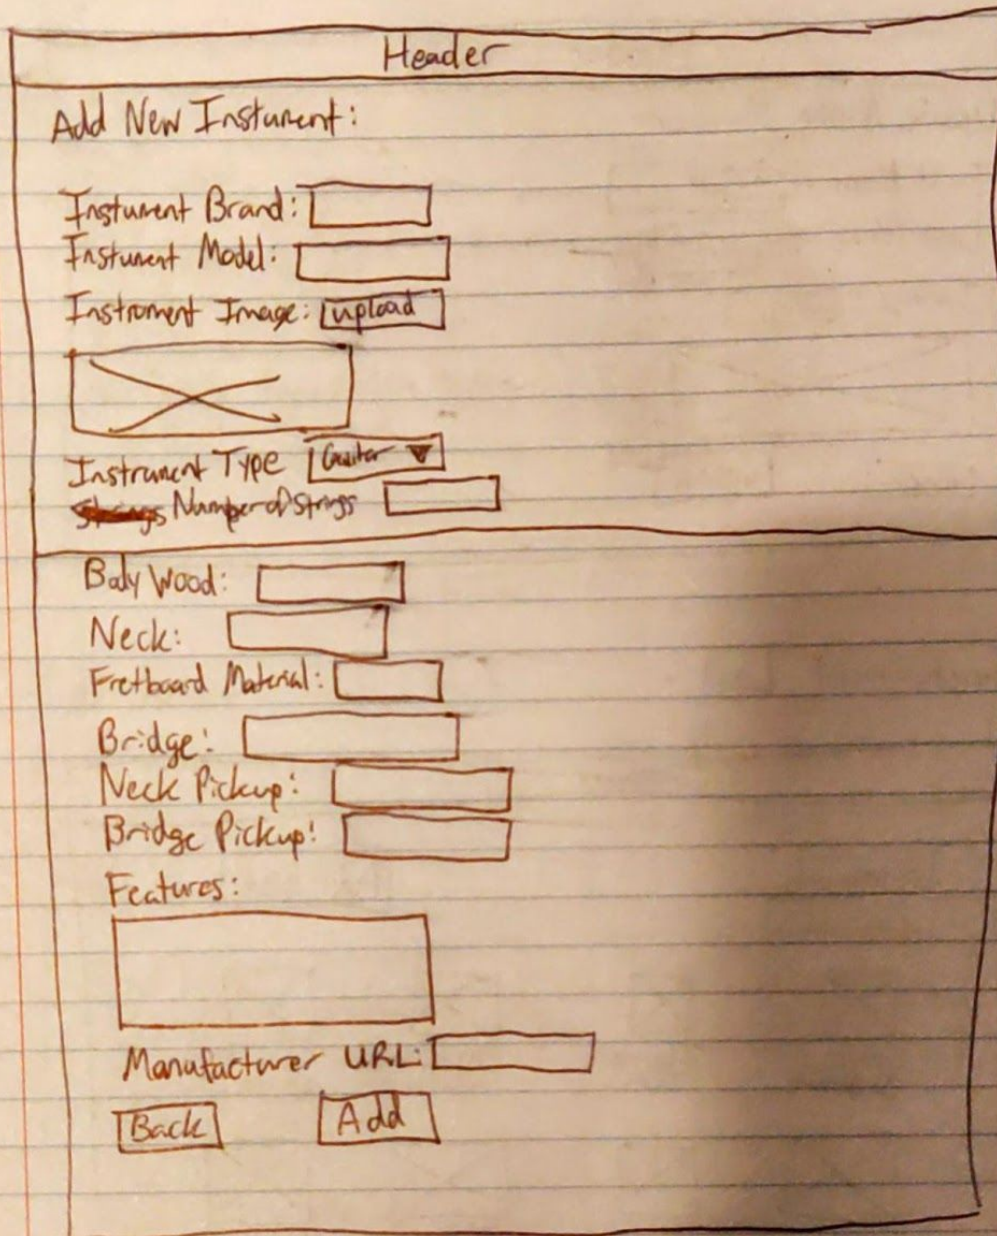 Header
Add New Instument:
Instument Brand:
Instument Model:
Instroment Image: upload
Instrument Type Guitar
Strings Number of Strings
Body Wood:
Neck:
Fretboard Material:
Bridge:
Neck Pickup:
Bridge Pickup:
Features:
Manufacturer URL:
Back Add